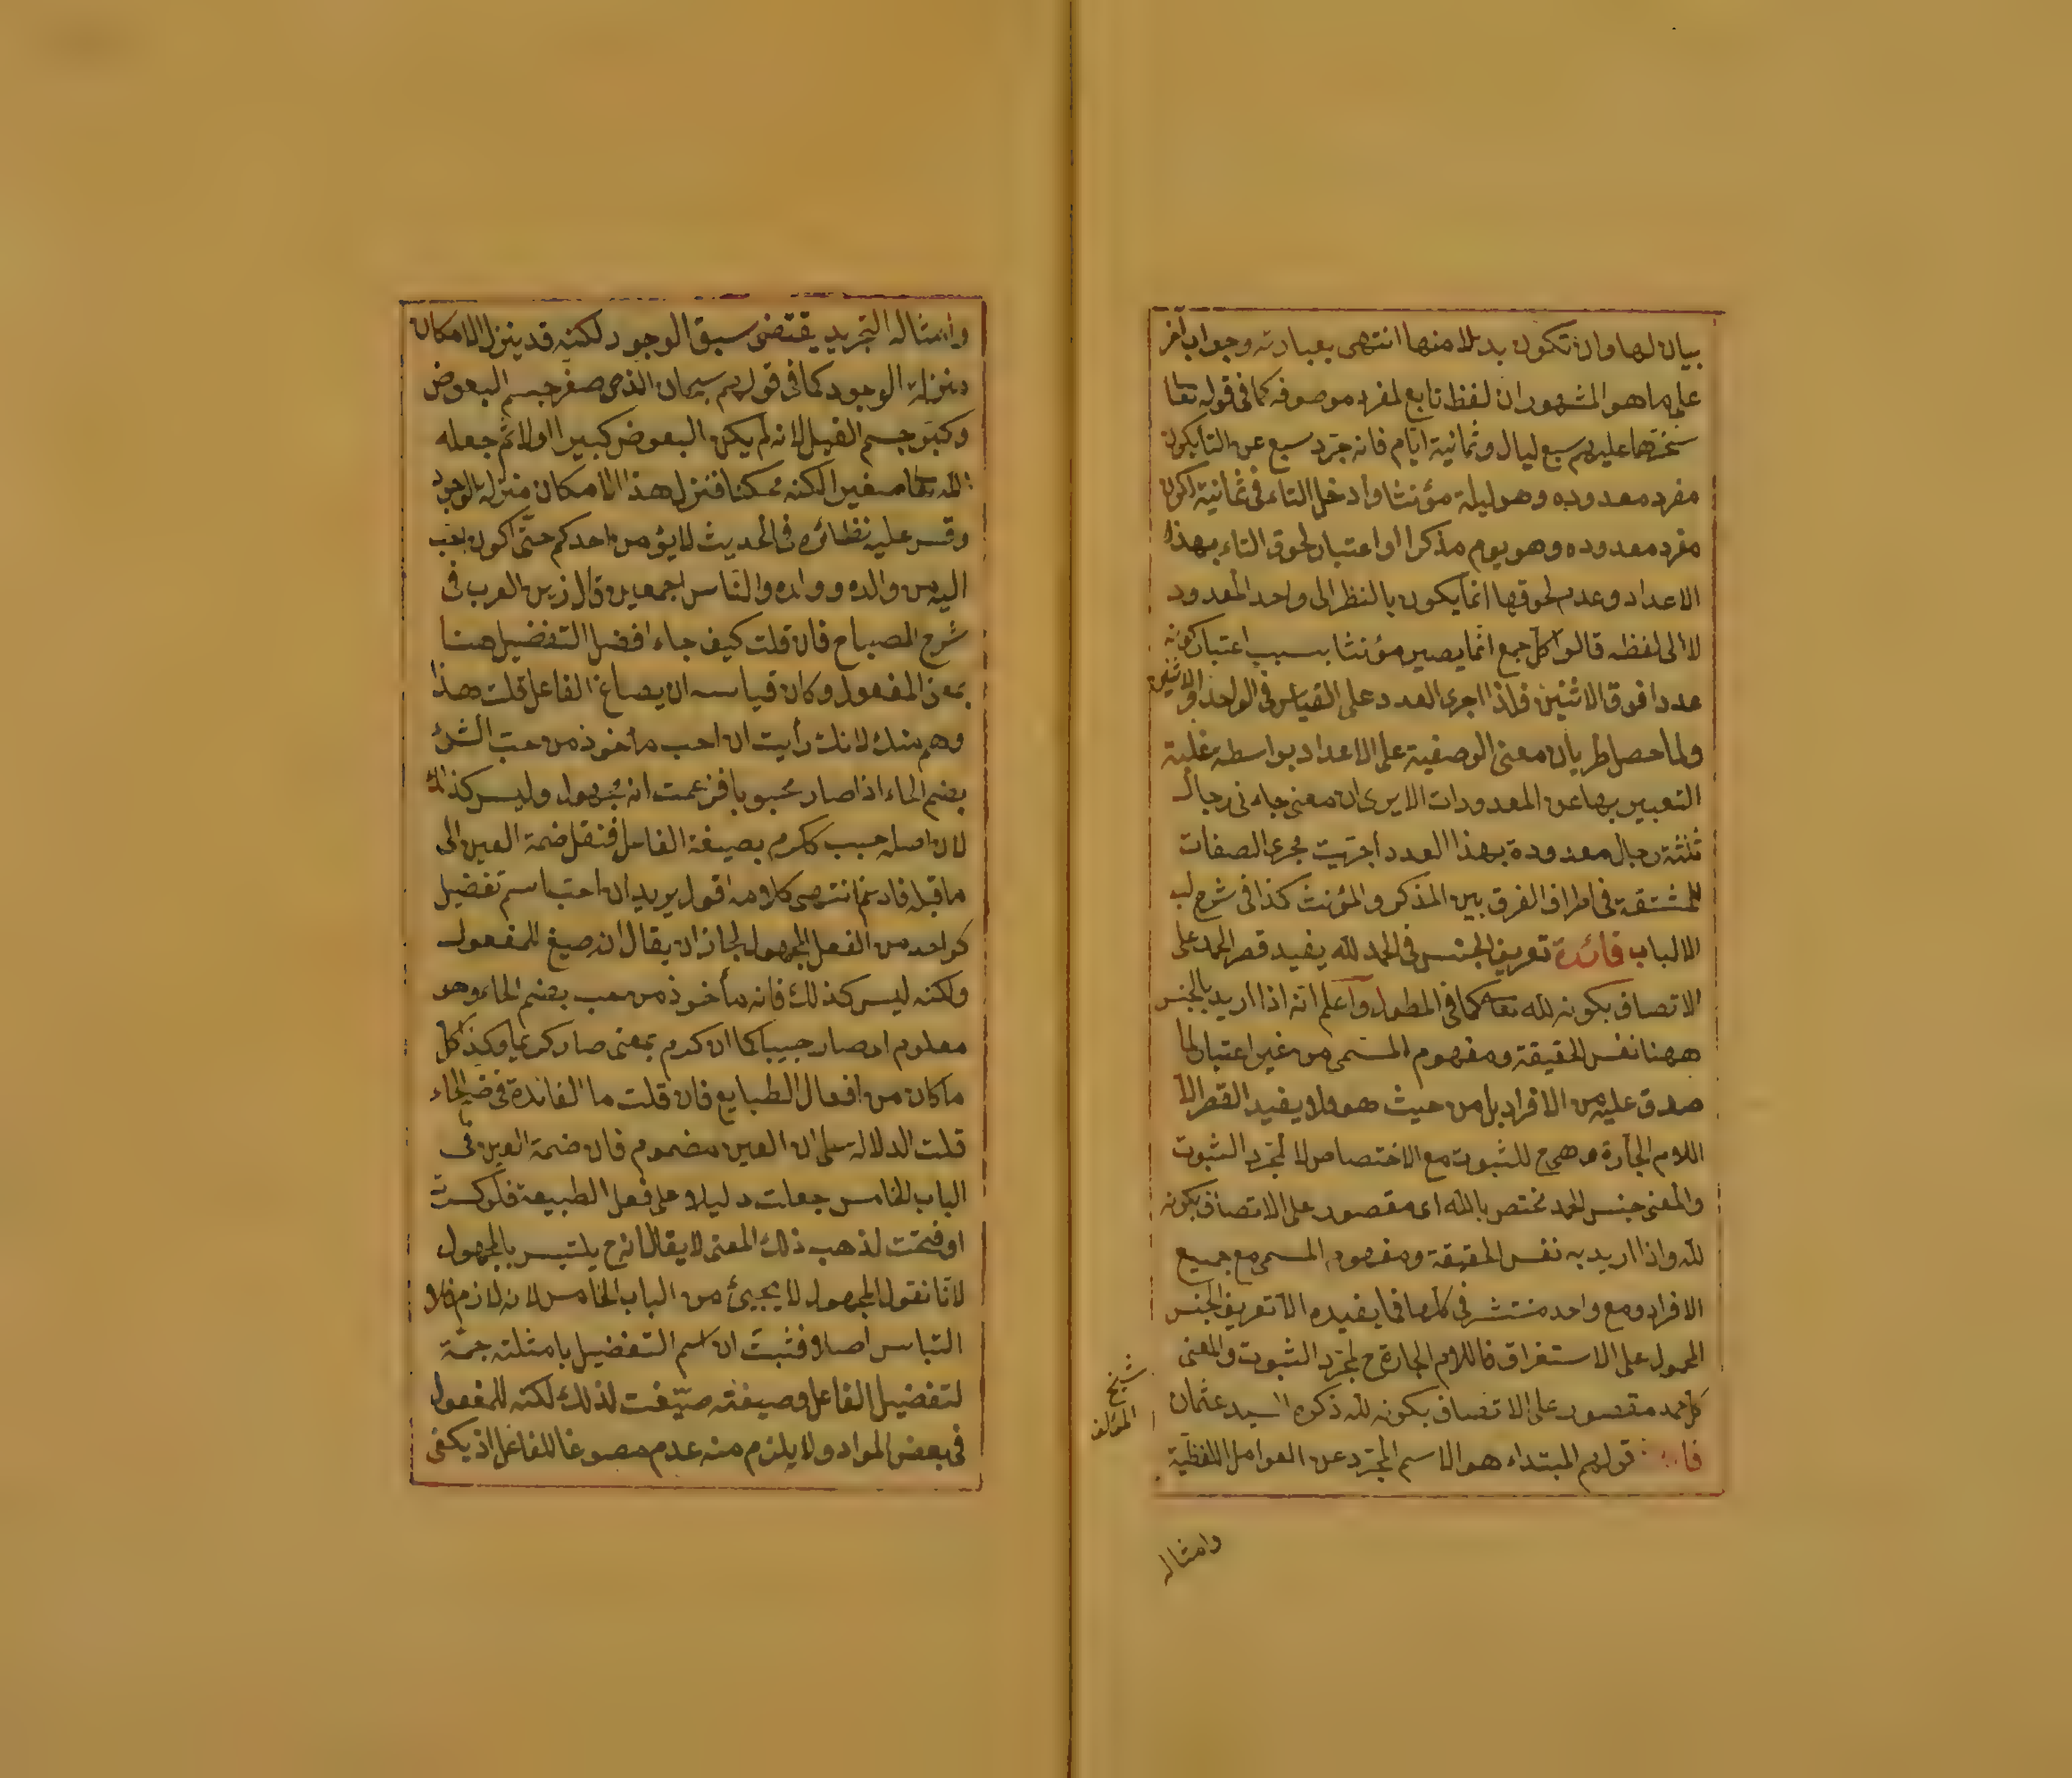 بيان لها وان تكون بدلا منها انتهى بعبارته وجواب آخر
على ما هو المشهور ان لفظ تابع لمفرد موصوفه كما فى قوله تعا
سخرها عليهم سبع ليال وثمانية ايّام فانه جرّد سبع عن التا لكون
مفرد معدوده وهو ليلة مؤنثا وادخل التاء فى ثمانية لكون
مفرد معدوده وهو يوم مذكرا او اعتبار لحوق التاء بهذه
الاعداد وعدم لحوقها انما يكون بالنظر الى واحد المعدود
لا الى لفظه قالوا كل جمع انما يصير مؤنثا بسبب اعتبار كونه
عددا فوق الاثنين فاذا اجرى العدد على القياس فى الواحد والاثنين
ولما حصل طريان معنى الوصفية على الاعداد بواسطه غلبة
التعبير بها عن المعدودات الا يرى ان معنى جاءنى رجال
ثلثة رجال معدودة بهذا العدد اجريت مجرى الصفات
المشتقة فى اطراف الفرق بين المذكر والمؤنث كذا فى شرح لب
الالباب فائدة تعريف الجنس فى الحمد لله يفيد قصر الحمد على
الاتصاف بكونه لله تعا كما فى المطول واعلم انه اذا اريد بالجنس
ههنا نفس الحقيقة ومفهوم المسمى من غير اعتبار لما
صدق عليه من الافراد بل من حيث هو فلا يفيد القصر الا
اللام الجارة وهى ح للثبوت مع الاختصاص لا لمجرد الثبوت
والمعنى جنس الحمد مختص بالله اى مقصور على الاتصاف بكونه
لله واذا اريد به نفس الحقيقة ومفهوم المسمى مع جميع
الافراد ومع واحد منتشر فى كلها فما يفيده الا تعريف الجنس
المحمول على الاستغراق فاللام الجارة ح لمجرد الثبوت والمعنى
كل حمد مقصور على الاتصاف بكونه لله ذكره السيد عثمان
شيخ
المؤلف
قولهم المبتداء هو الاسم المجرد عن العوامل اللفظية
وامثاله
وامثاله التجريد يقتضى سبق الوجود لكنه قد ينزل الامكان
منزلة الوجود كما فى قولهم سبحان الذى صغر جسم البعوض
وكبّر جسم الفيل لانه لم يكن البعوض كبيرا اولا ثم جعله
الله تعا صغيرا لكنه ممكنا فنزل هذا الامكان منزلة الوجود
وقس عليه نظائره فى الحديث لا يؤمن احدكم حتى اكون احب
اليه من والده وولده والناس اجمعين قال زين العرب فى
شرح المصباح فان قلت كيف جاء افضل التفضيل هنا
بمعنى المفعول وكان قياسه ان يصاغ الفاعل قلت هذا
وهم منك لانك رأيت ان احب مأخوذ من حب الشئ
بضم الحاء اذا صار محبوبا فزعمت انه مجهول وليس كذلك
لان اصله حبب ككرم بصيغة الفاعل فنقل ضمة العين الى
ما قبله فادغم انتهى كلامه اقول يريد ان احب اسم تفضيل
لو اخذ من الفعل المجهول لجاز ان يقال انه صيغ للمفعول
ولكنه ليس كذلك فانه مأخوذ من حب بضم الحاء وهو
معلوم اى صار حبيبا كما ان كرم بمعنى صار كريما وكذا كل
ما كان من افعال الطبايع فان قلت ما الفائدة فى ضم الحاء
قلت الدلالة على ان العين مضموم فان ضمة العين فى
الباب الخامس جعلت دليلا على فعل الطبيعة فلو كسرت
او فتحت لذهب ذلك المعنى لا يقال انه ح يلتبس بالمجهول
لانا نقول المجهول لا يجيئ من الباب الخامس لانه لازم فلا
التباس اصلا فثبت ان اسم التفضيل بامثلته جمة
لتفضيل الفاعل وصيغته صيّغت لذلك لكنه للمفعول
فى بعض المواد ولا يلزم منه عدم مصوغا للفاعل اذ يكفى